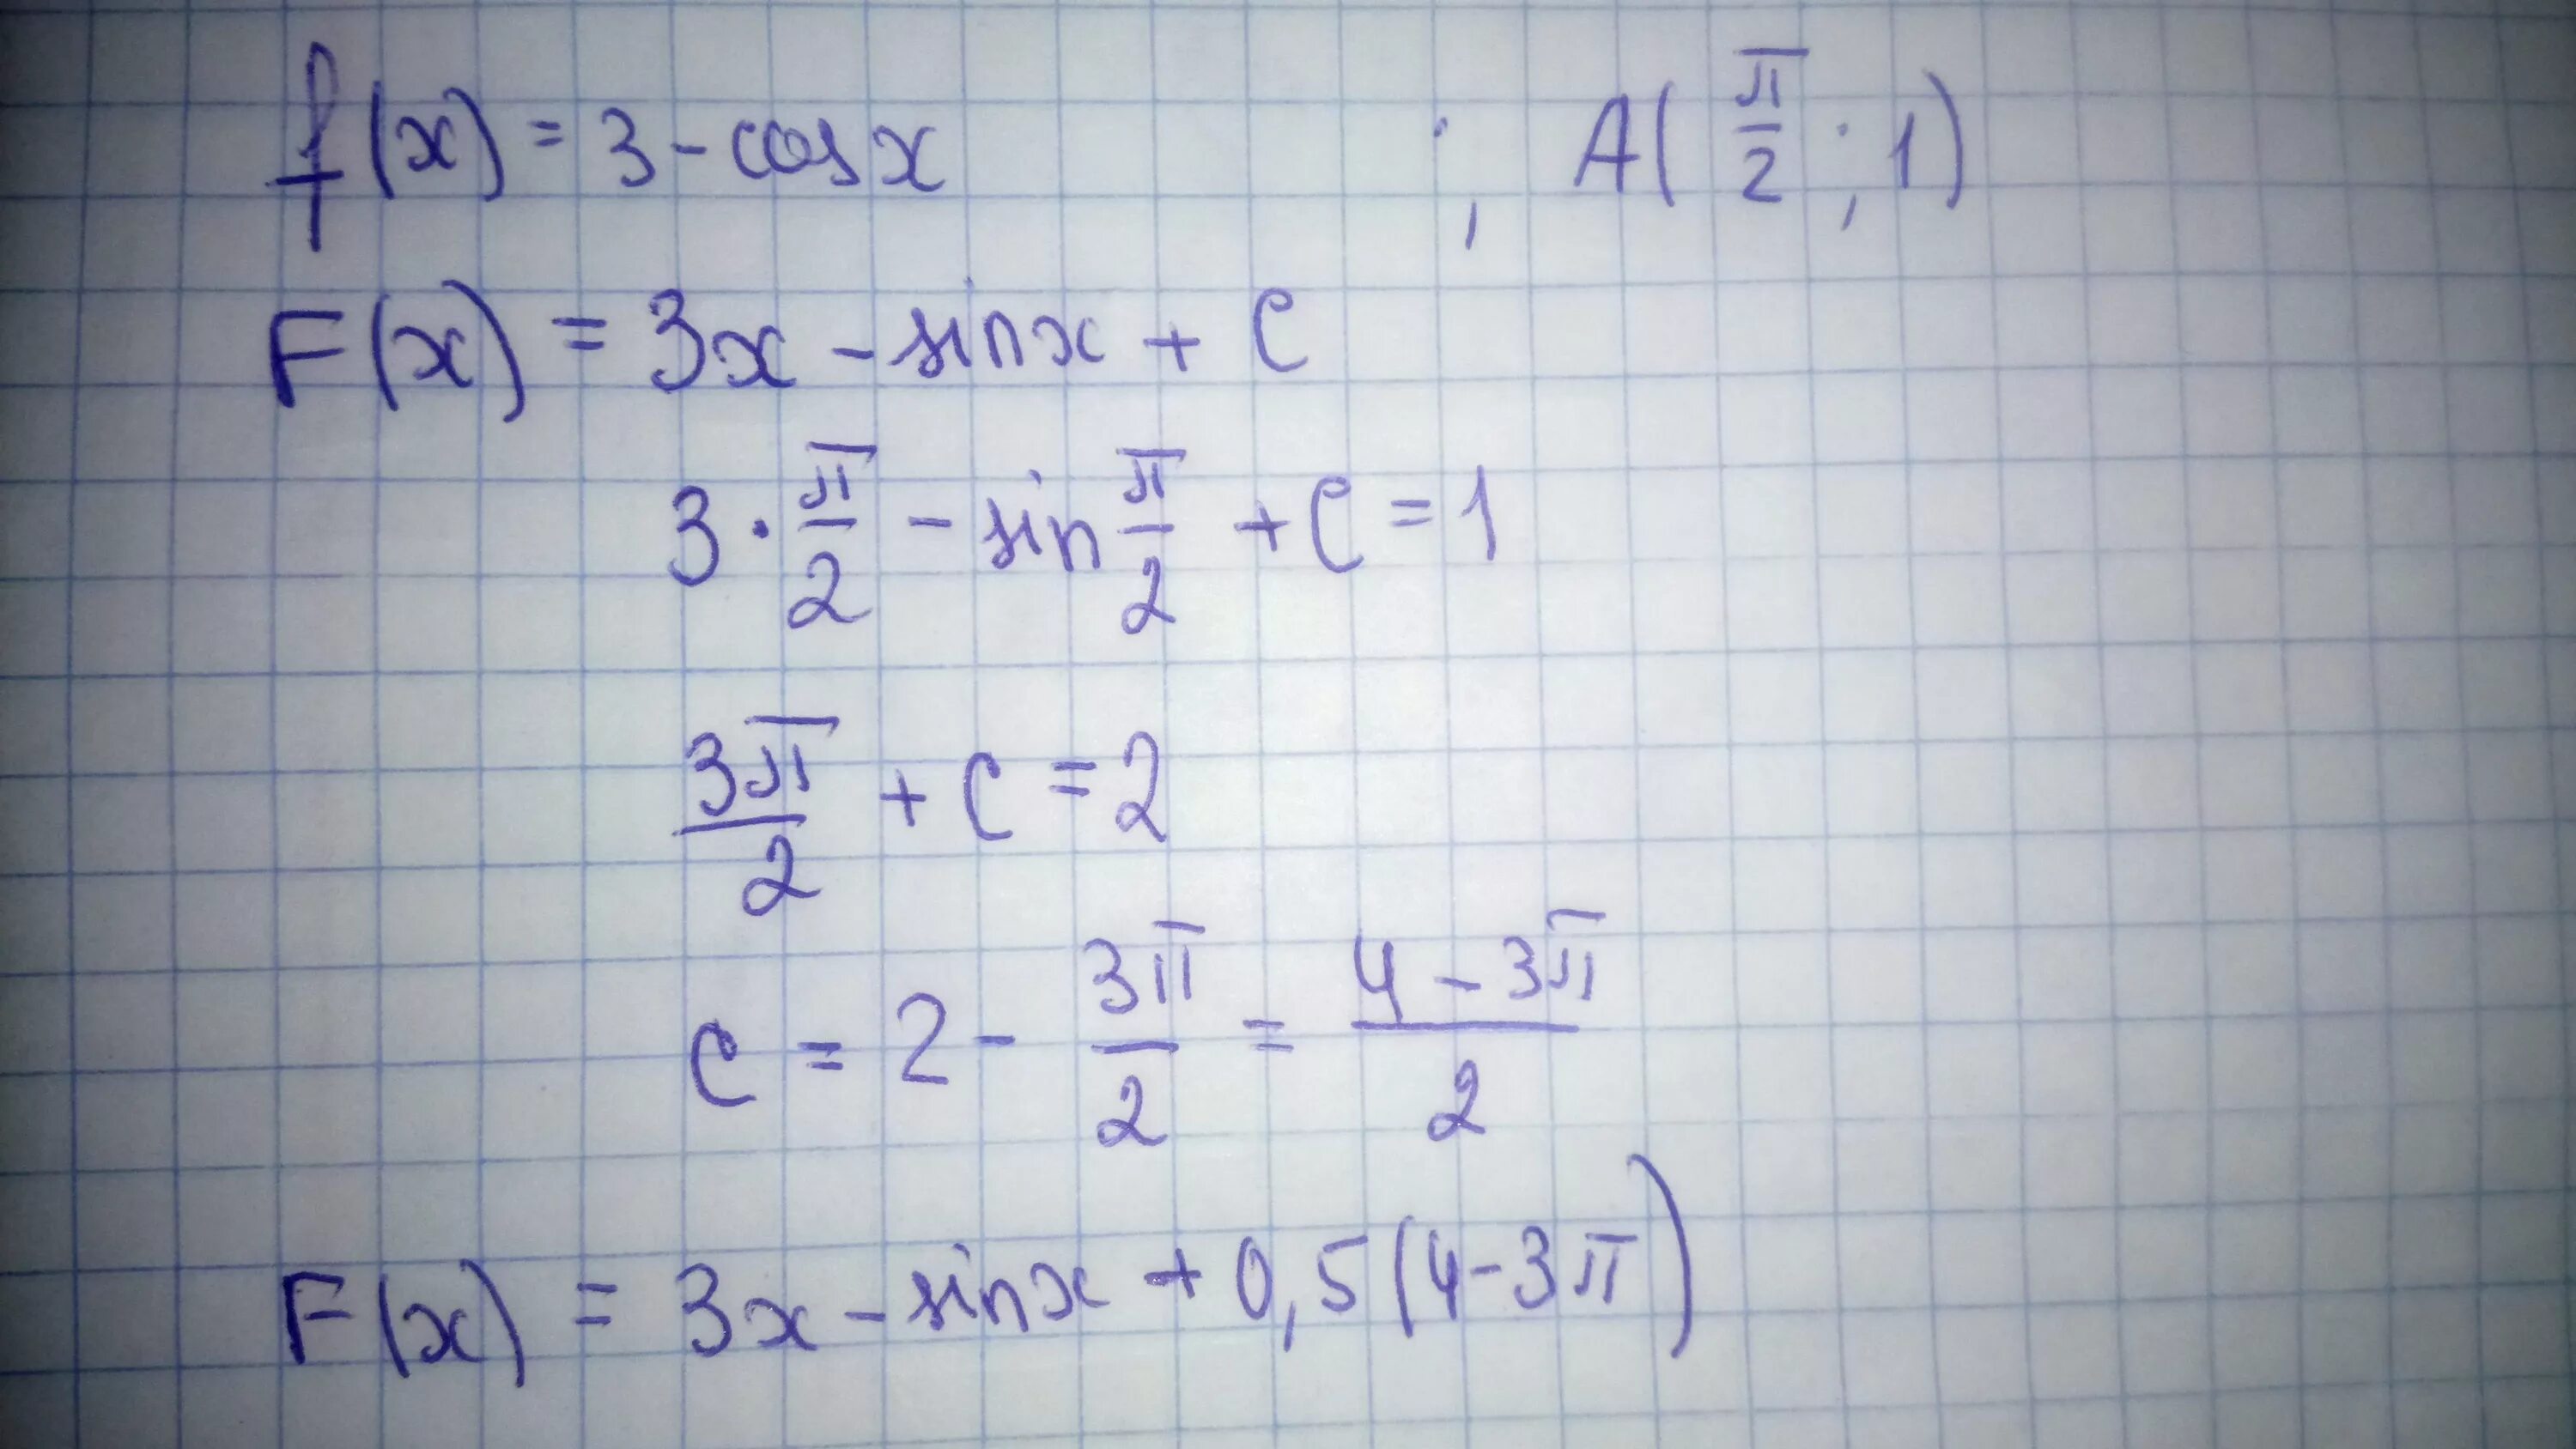 f(x) = 3 - cos x ; A(π/2 ; 1)
F(x) = 3x - sin x + C
3 · π/2 - sin π/2 + C = 1
3π/2 + C = 2
C = 2 - 3π/2 = (4 - 3π)/2
F(x) = 3x - sin x + 0,5(4 - 3π)